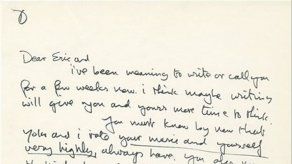 Dear Eric and
i've been meaning to write or call you
for a few weeks now. i think maybe writing
will give you and yours more time to think.
You must know by now that
Yoko and i rate your music and yourself
very highly, always have. you also